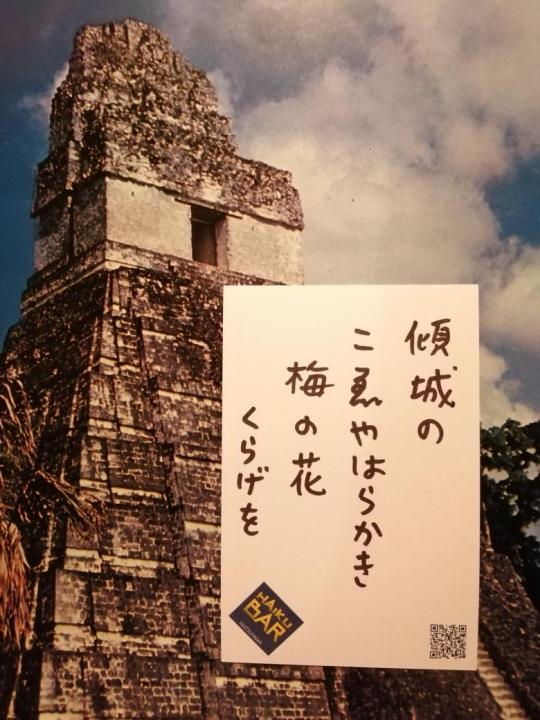 傾城の
こゑやはらかき
梅の花
くらげを
HAIKU
BAR